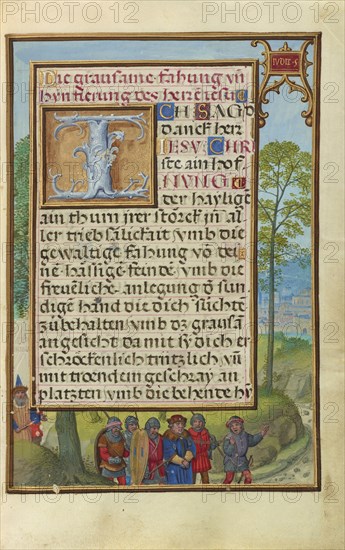 IVDIT · 5
Die grausame fahung vn̄
hynfierung des herre iesu
ICH SAG
danck herr
IESV CHR
ste ain hof
NVNG
der hayligen
ain thurn irer störck jn al
ler trieb sälickait vmb die
gewaltige fahung vō dei
ne hässige feinde vmb die
freuēliche anlegung d̄ sun
digen hand die dich sůchtē
zůbehalten vmb dz grausā
angesicht da mit sy dich er
schrockenlich trutzlich vn̄
mit troendem geschray an
platzten vmb die behende hy